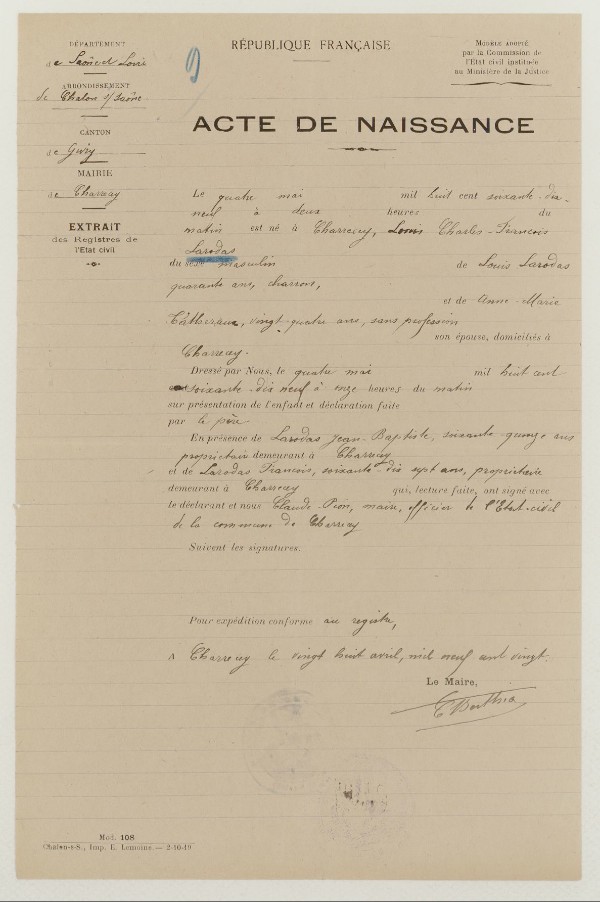 DÉPARTEMENT
de Saône et Loire
ARRONDISSEMENT
de Chalon s/ Saône
CANTON
de Givry
MAIRIE
de Charrecey
EXTRAIT
des Registres de
l'Etat civil
9
RÉPUBLIQUE FRANÇAISE
MODÈLE ADOPTÉ
par la Commission de
l'Etat civil instituée
au Ministère de la Justice
ACTE DE NAISSANCE
Le quatre mai mil huit cent soixante-dix-
neuf à deux heures du
matin est né à Charrecey, Louis Charles-François
Larodas
du sexe masculin de Louis Larodas
quarante ans, charron,
et de Anne-Marie
vingt-quatre ans, sans profession
son épouse, domiciliés à
Charrecey.
Dressé par Nous, le quatre mai mil huit cent
soixante-dix neuf à onze heures du matin
sur présentation de l'enfant et déclaration faite
par le père
En présence de Larodas Jean-Baptiste, soixante-quinze ans
propriétaire demeurant à Charrecey
et de Larodas François, soixante-dix sept ans, propriétaire
demeurant à Charrecey qui, lecture faite, ont signé avec
le déclarant et nous Claude Pion, maire, officier de l'Etat-civil
de la commune de Charrecey
Suivent les signatures.
Pour expédition conforme au registre,
A Charrecey le vingt huit avril, mil neuf cent vingt.
Le Maire,
Mod. 108
Chalon-s-S., Imp. E. Lemoine. — 2-10-19